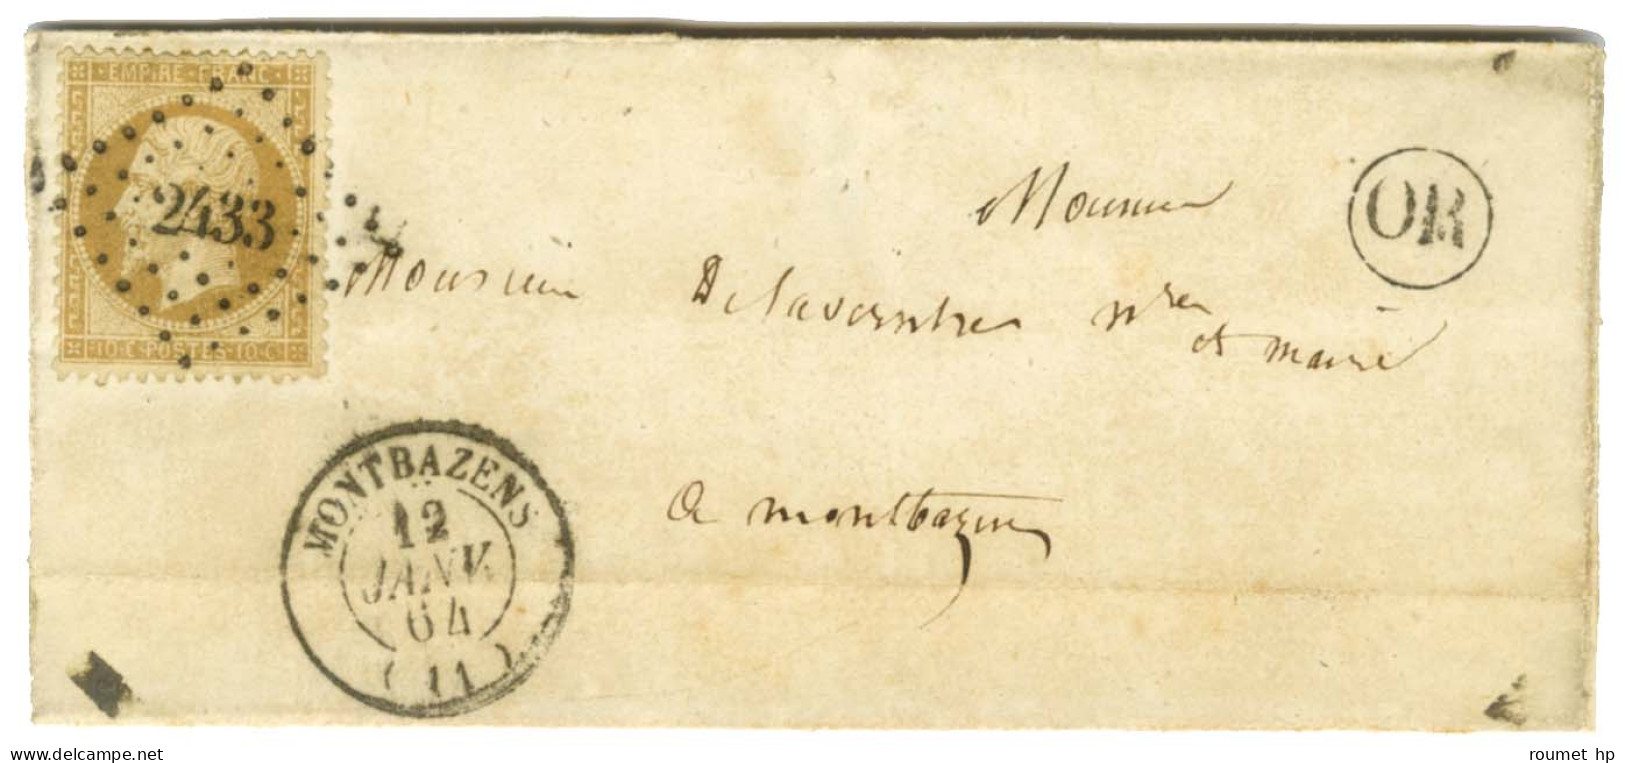 EMPIRE FRANC
2433
10 C POSTES 10 C
OR
Monsieur
Monsieur Delavernhe nre
et maire
a montbazens
MONTBAZENS
12
JANV.
64
( 11 )
www.delcampe.net
roumet hp